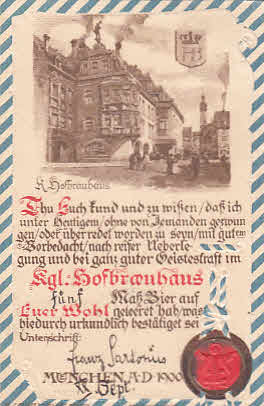 K. Hofbräuhaus
HB
Thu Euch kund und zu wißen/daß ich
unter Heutigem/ohne von Jemanden gezwun
gen/oder überredet worden zu seyn/mit gutem
Vorbedacht/nach reifer Ueberle
gung und bei ganz guter Geisteskraft im
Kgl. Hofbræuhaus
fünf Maß Bier auf
Euer Wohl geleeret hab/was
hiedurch urkundlich bestätiget sei
Unterschrift:
Franz Sartorius
MÜNCHEN A·D 1900
Sept.